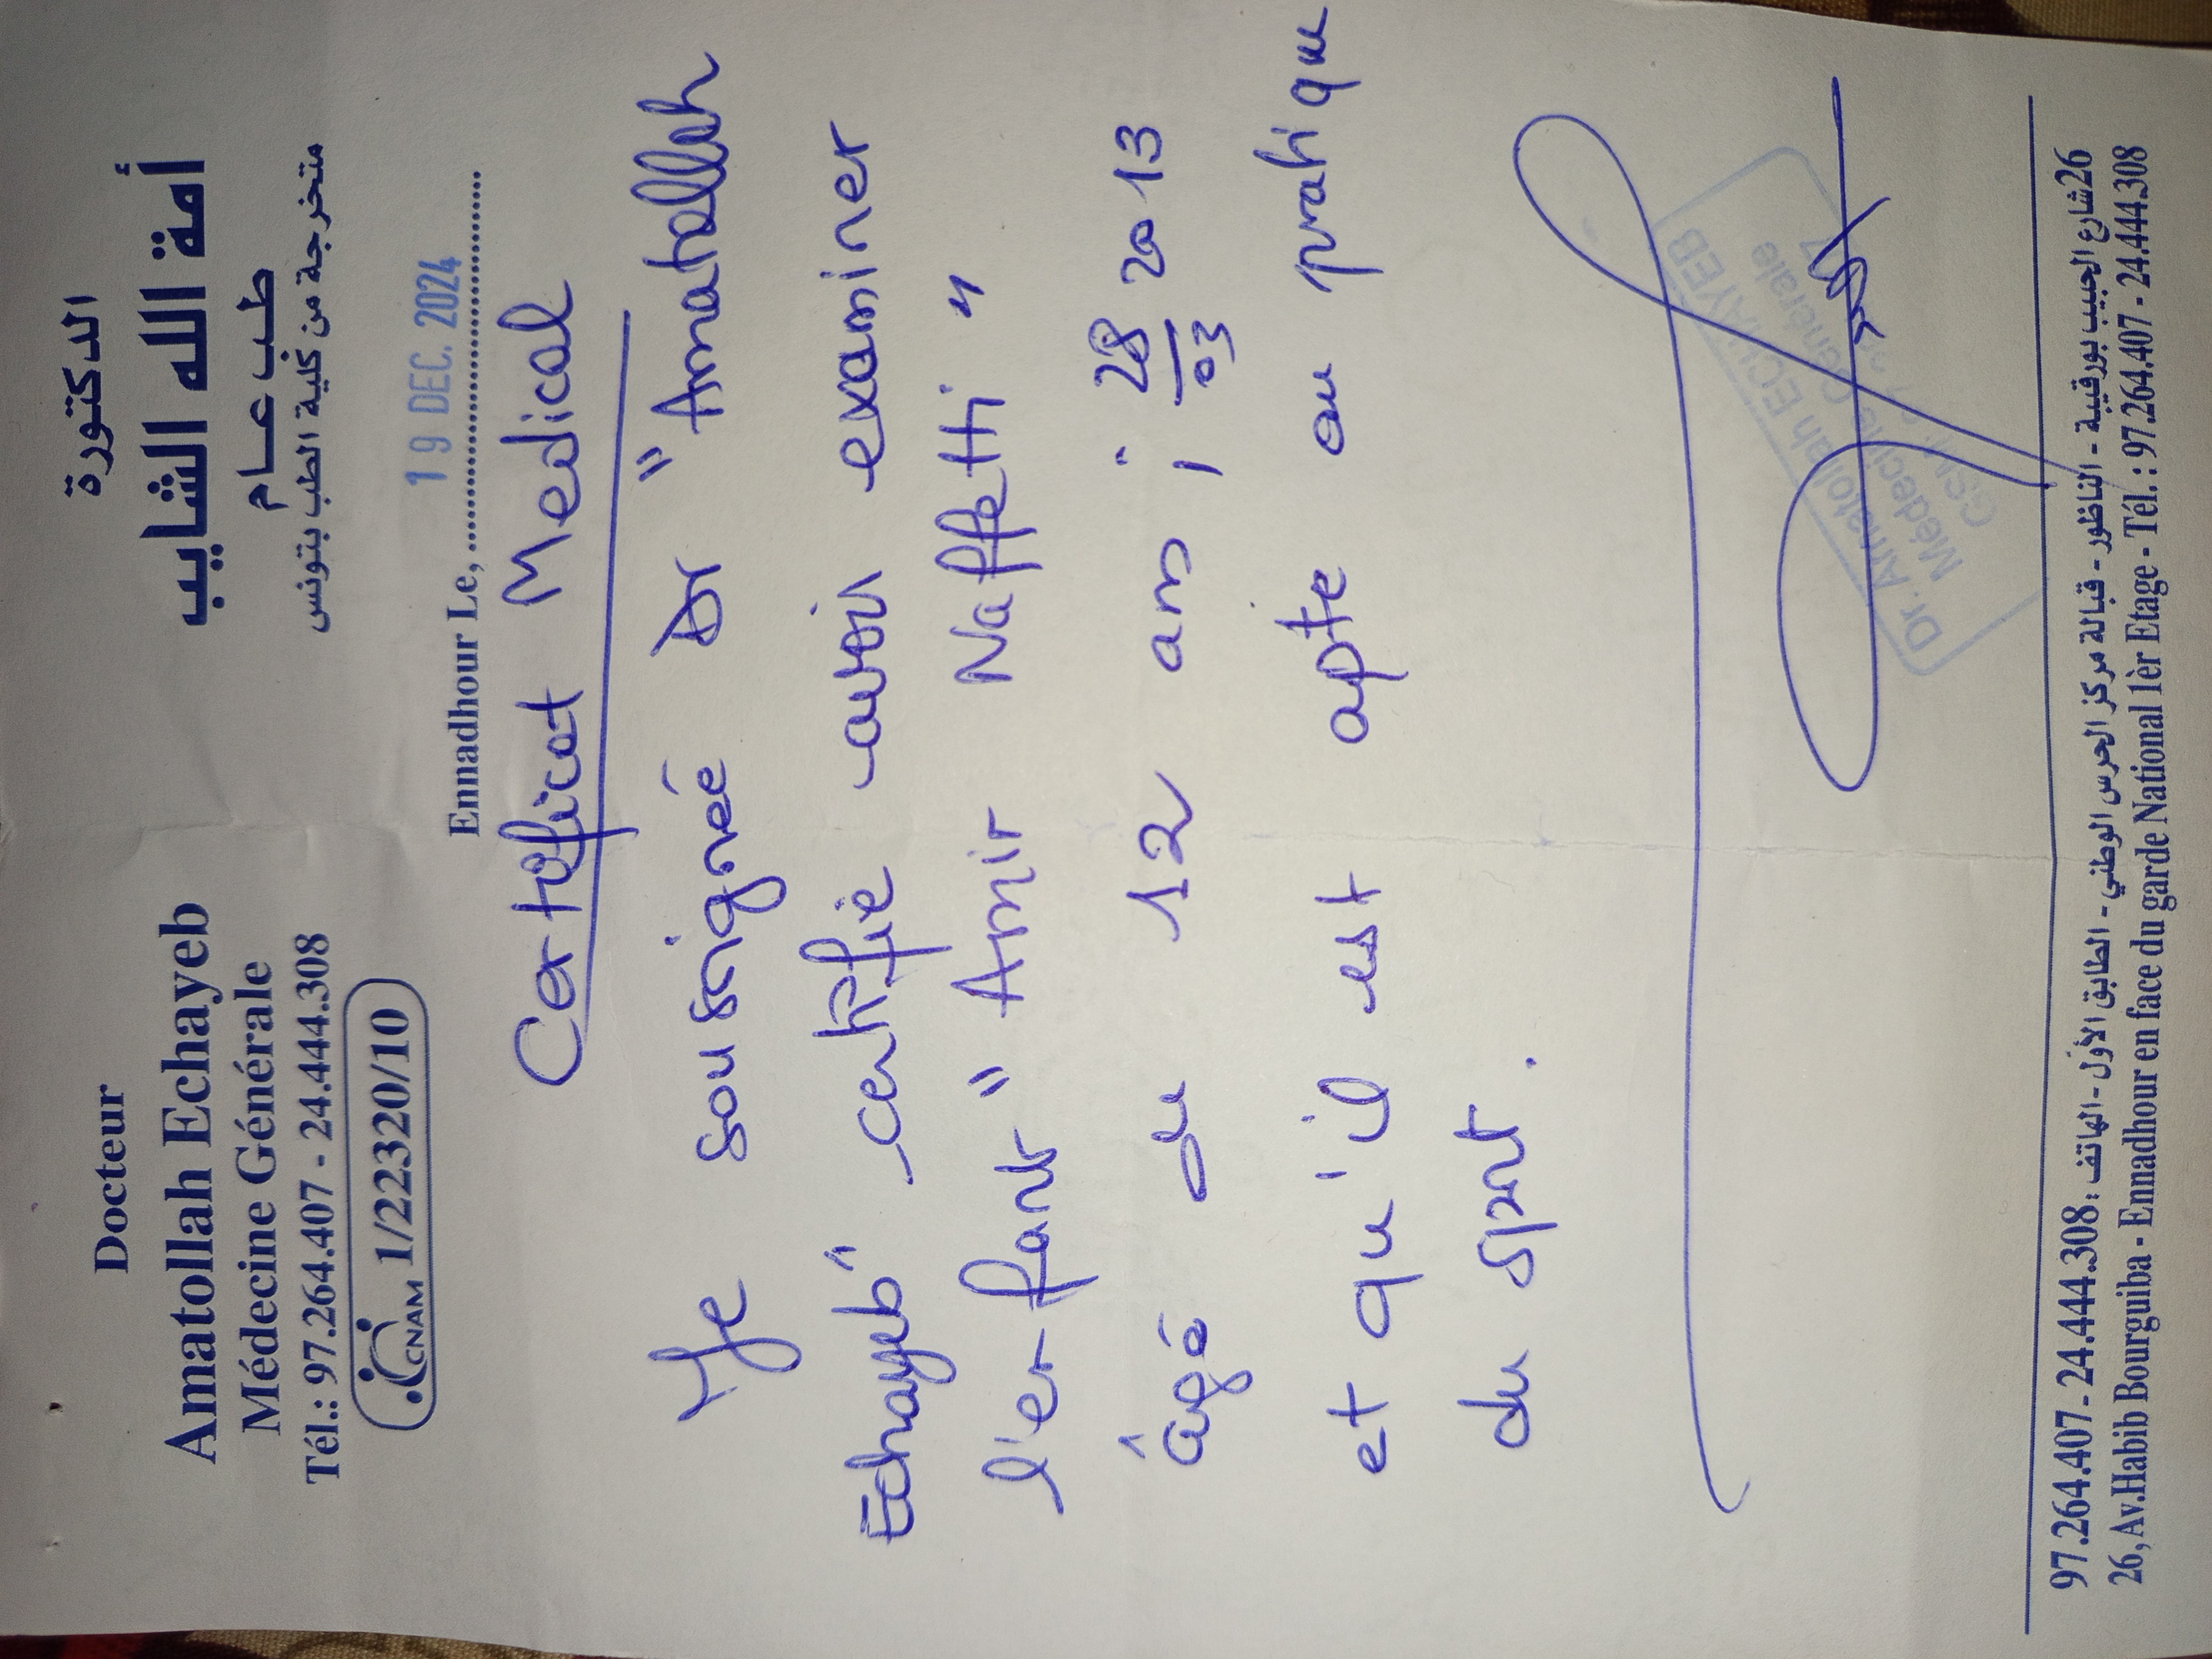 Docteur
Amatollah Echayeb
Médecine Générale
Tél.: 97.264.407 - 24.444.308
CNAM 1/22320/10
الدكتورة
أمة الله الشايب
طب عام
متخرجة من كلية الطب بتونس
Ennadhour Le, 19 DEC. 2024
Certificat Medical
Je soussigné Dr "Amatollah
Echayeb" certifie avoir examiner
l'enfant "Amir Naffetti"
âgé de 12 ans ; 28/03 2013
et qu'il est apte au pratique
du sport.
Dr. Amatollah ECHAYEB
Médecine Générale
GSM
26 شارع الحبيب بورقيبة - الناظور - قبالة مركز الحرس الوطني - الطابق الأول - الهاتف : 97.264.407 - 24.444.308
26, Av.Habib Bourguiba - Ennadhour en face du garde National 1èr Etage - Tél. : 97.264.407 - 24.444.308